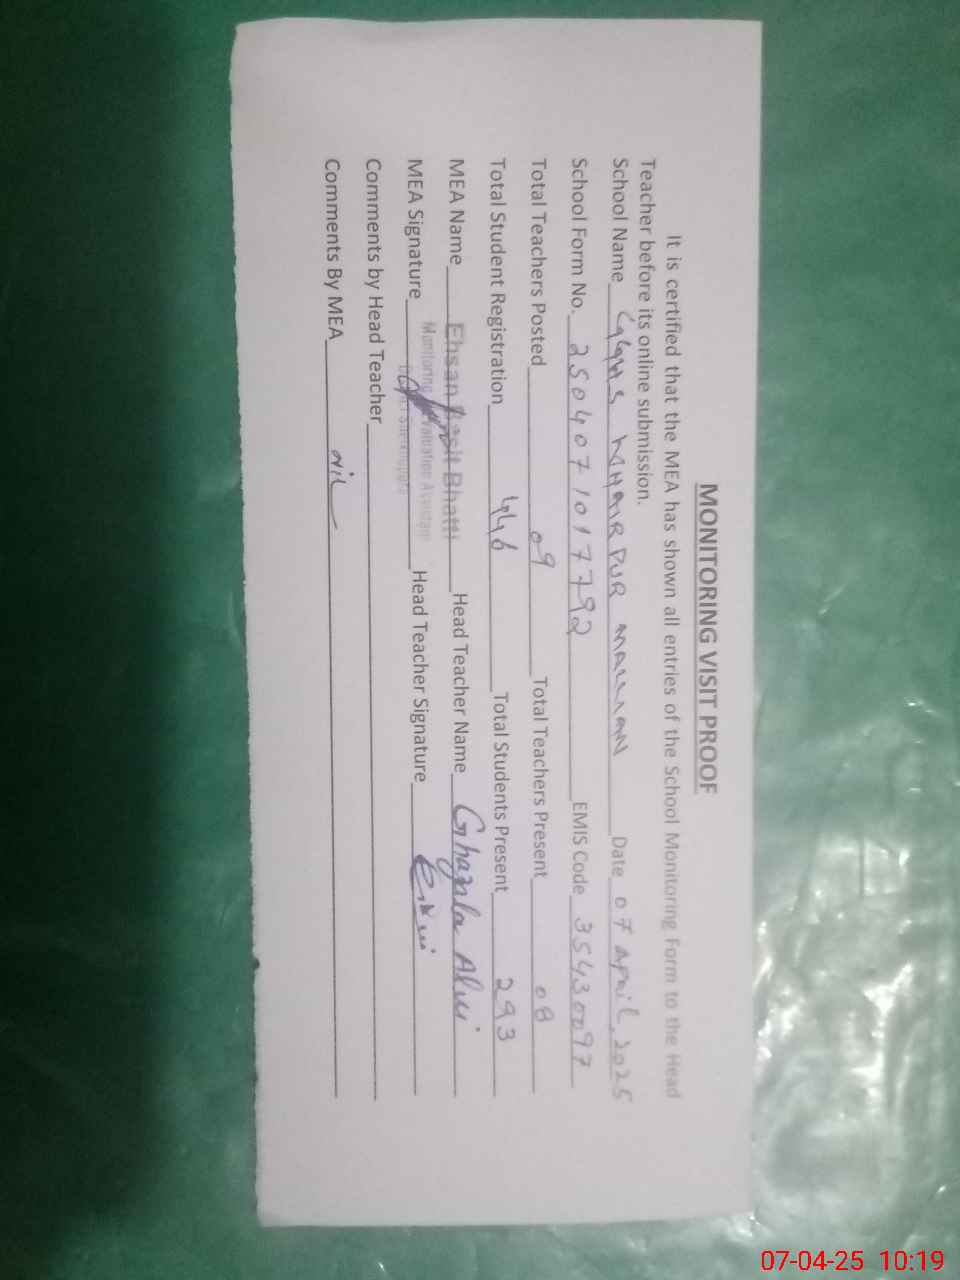 MONITORING VISIT PROOF
It is certified that the MEA has shown all entries of the School Monitoring Form to the Head
Teacher before its online submission.
School Name MALLIAN Date 07 April, 2025
School Form No. 2504071017792 EMIS Code 35430097
Total Teachers Posted 09 Total Teachers Present 08
Total Student Registration 446 Total Students Present 293
MEA Name Ehsan Bhatti Head Teacher Name Ghazala Alvi
Monitoring Evaluation Assistant
MEA Signature Head Teacher Signature
Comments by Head Teacher
Comments By MEA Nil
07-04-25 10:19